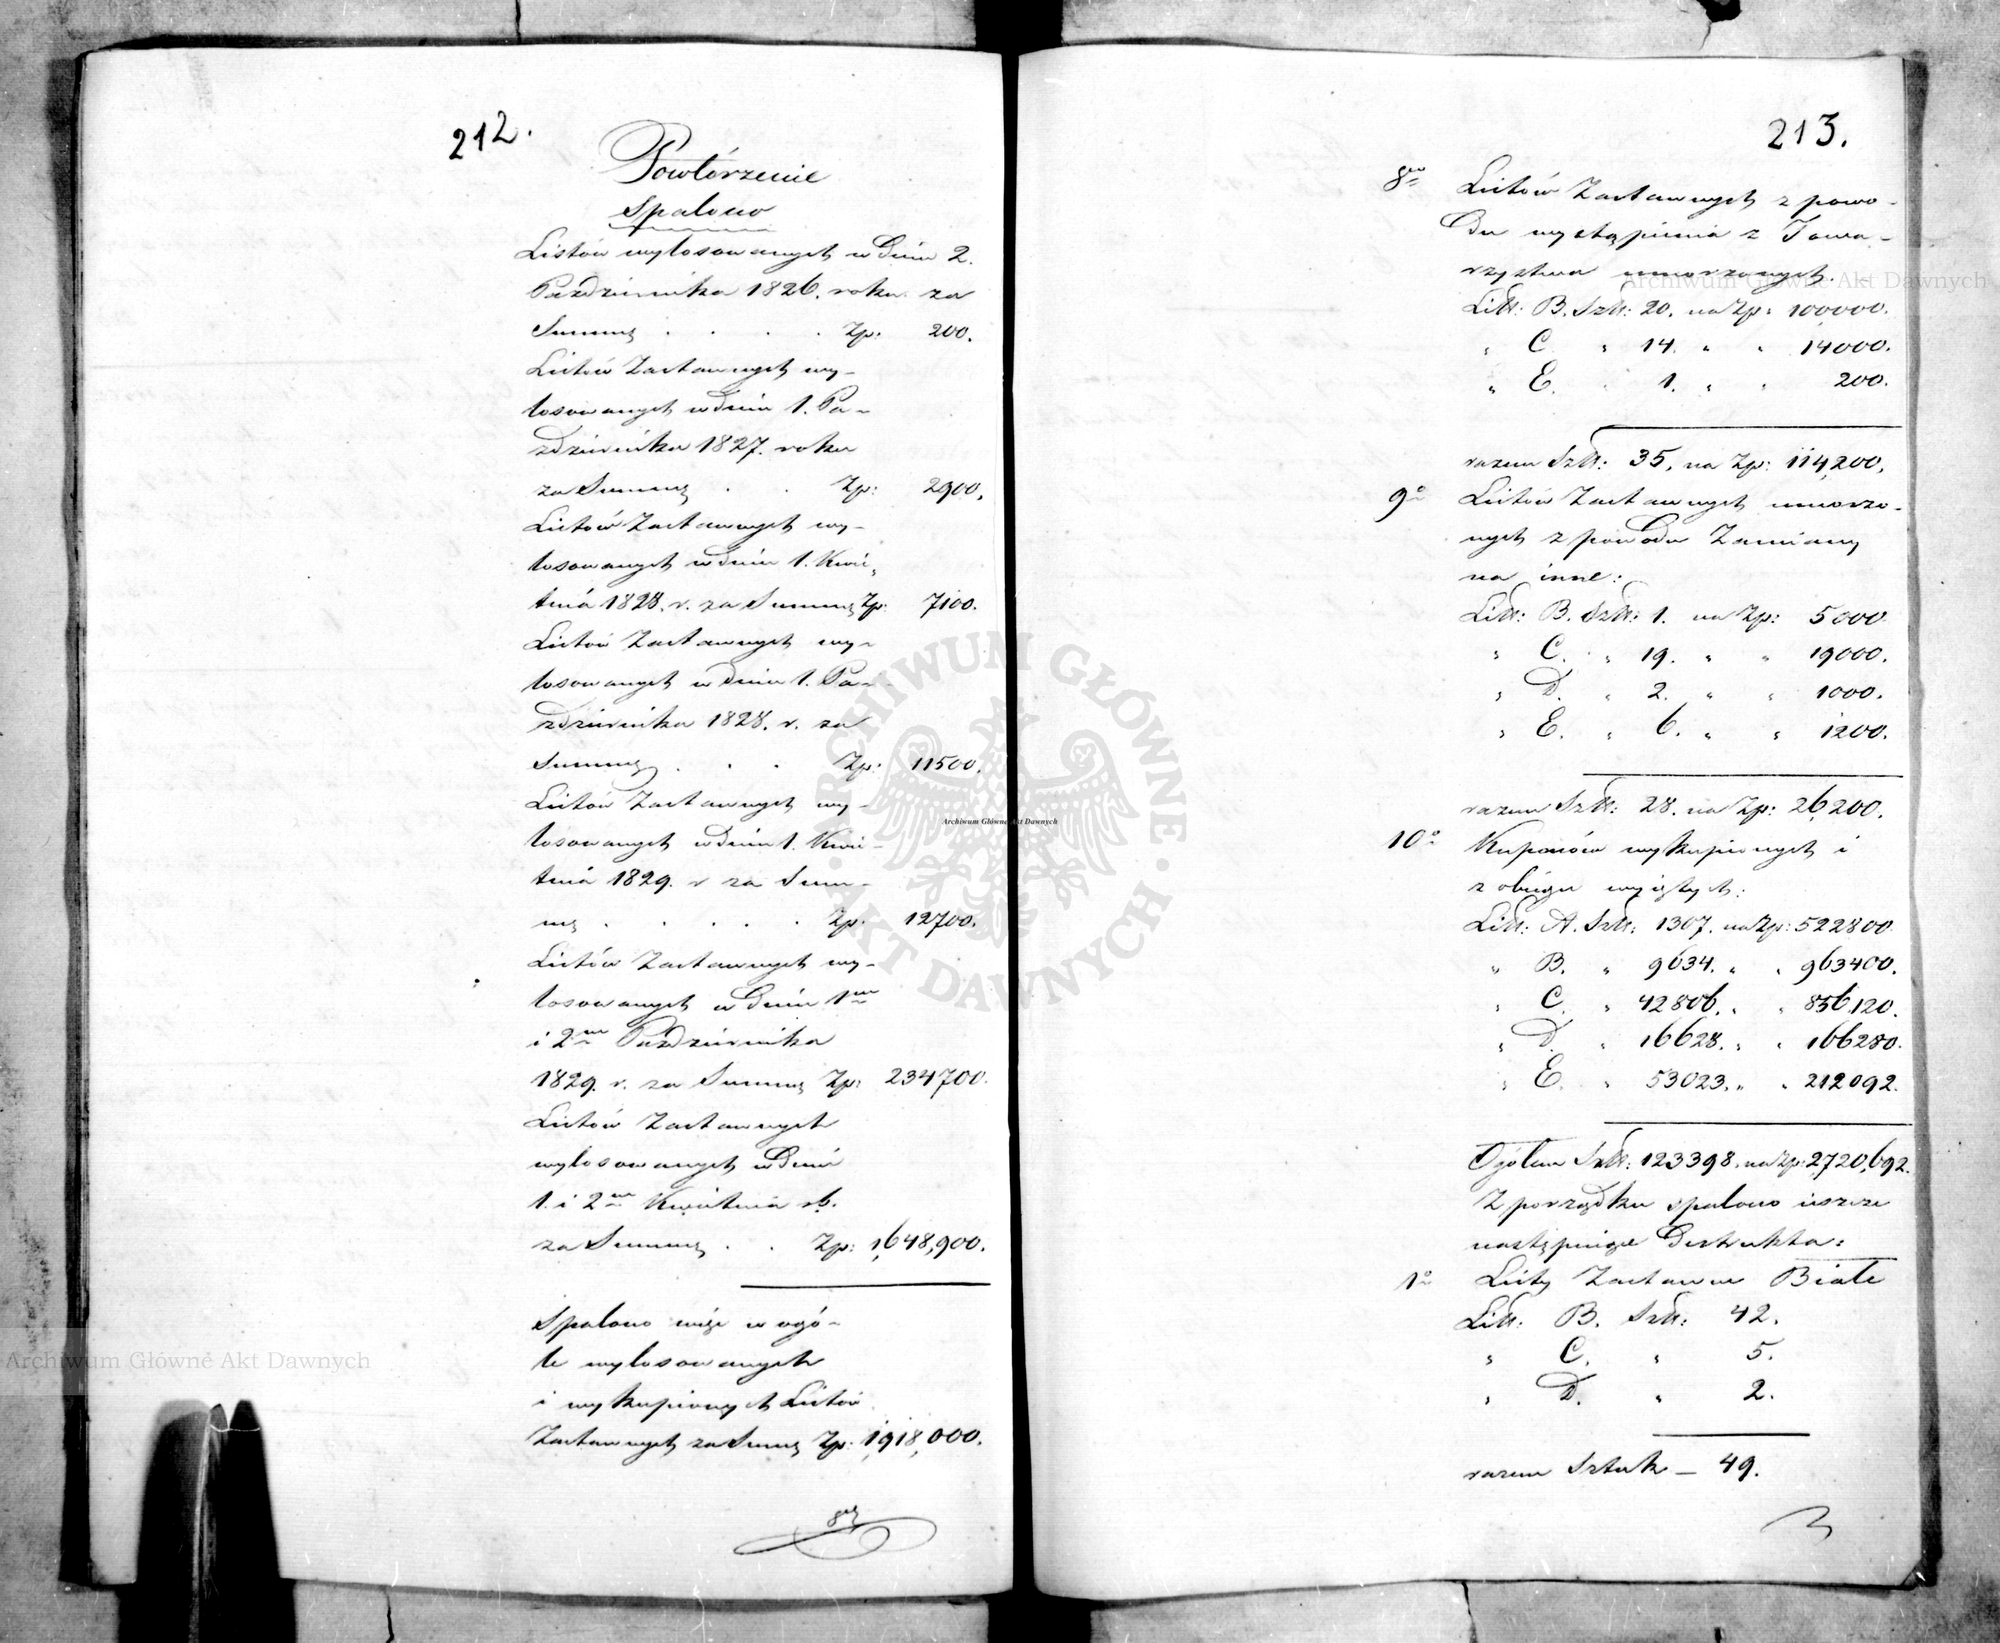 212.
Powtórzenie
Spalono
Listów wylosowanych w dniu 2.
Października 1826. roku za
Summę . . . . Zp: 200.
Listów Zastawnych wy-
losowanych w dniu 1. Pa-
zdziernika 1827. roku
za Summę . . Zp: 2900.
Listów Zastawnych wy-
losowanych w dniu 1. Kwie-
tnia 1828. r. za Summę Zp: 7100.
Listów Zastawnych wy-
losowanych w dniu 1. Pa-
zdziernika 1828. r. za
Summę . . . Zp: 11500.
Listów Zastawnych wy-
losowanych w dniu 1. Kwie-
tnia 1829. r za Sum-
mę . . . . . Zp. 12700.
Listów Zastawnych wy-
losowanych w dniu 1m
i 2m Października
1829. r. za Summę Zp: 234700.
Listów Zastawnych
wylosowanych w dniu
1. i 2m Kwietnia rb.
za Summę . . Zp: 1,648,900.
Spalono więc w ogó-
le wylosowanych
i wykupionych Listów
Zastawnych za Summę Zp: 1,918,000.
213.
8vo Listów Zastawnych z powo-
du wystąpienia z Towa-
rzystwa umorzonych.
Litt: B. Sztk: 20. na Zp: 100,000.
" C " 14. " " 14000.
" E. " 1. " " 200.
razem Sztk: 35. na Zp: 114,200.
9o Listów Zastawnych umorzo-
nych z powodu Zamiany
na inne:
Litt: B. Sztk: 1. na Zp: 5000
" C. " 19. " " 19000.
" D. " 2. " " 1000.
" E. " 6. " " 1200.
razem Sztk: 28. na Zp: 26,200.
10o Kuponów wykupionych i
z obiegu wyjętych:
Litt: A. Sztk: 1307. na Zp: 522800
" B. " 9634. " " 963400.
" C. " 42806. " " 856,120.
" D. " 16628. " " 166280.
" E. " 53023. " " 212092.
Ogółem Sztk: 123398. na Zp: 2,720,692.
Z porządku spalono jeszcze
następujące Destrukta:
1o Listy Zastawne Białe
Litt: B. Sztk: 42.
" C. " 5.
" D. " 2.
razem Sztuk — 49.
Archiwum Główne Akt Dawnych
ARCHIWUM GŁÓWNE · AKT DAWNYCH ·
Archiwum Główne Akt Dawnych
Archiwum Główne Akt Dawnych